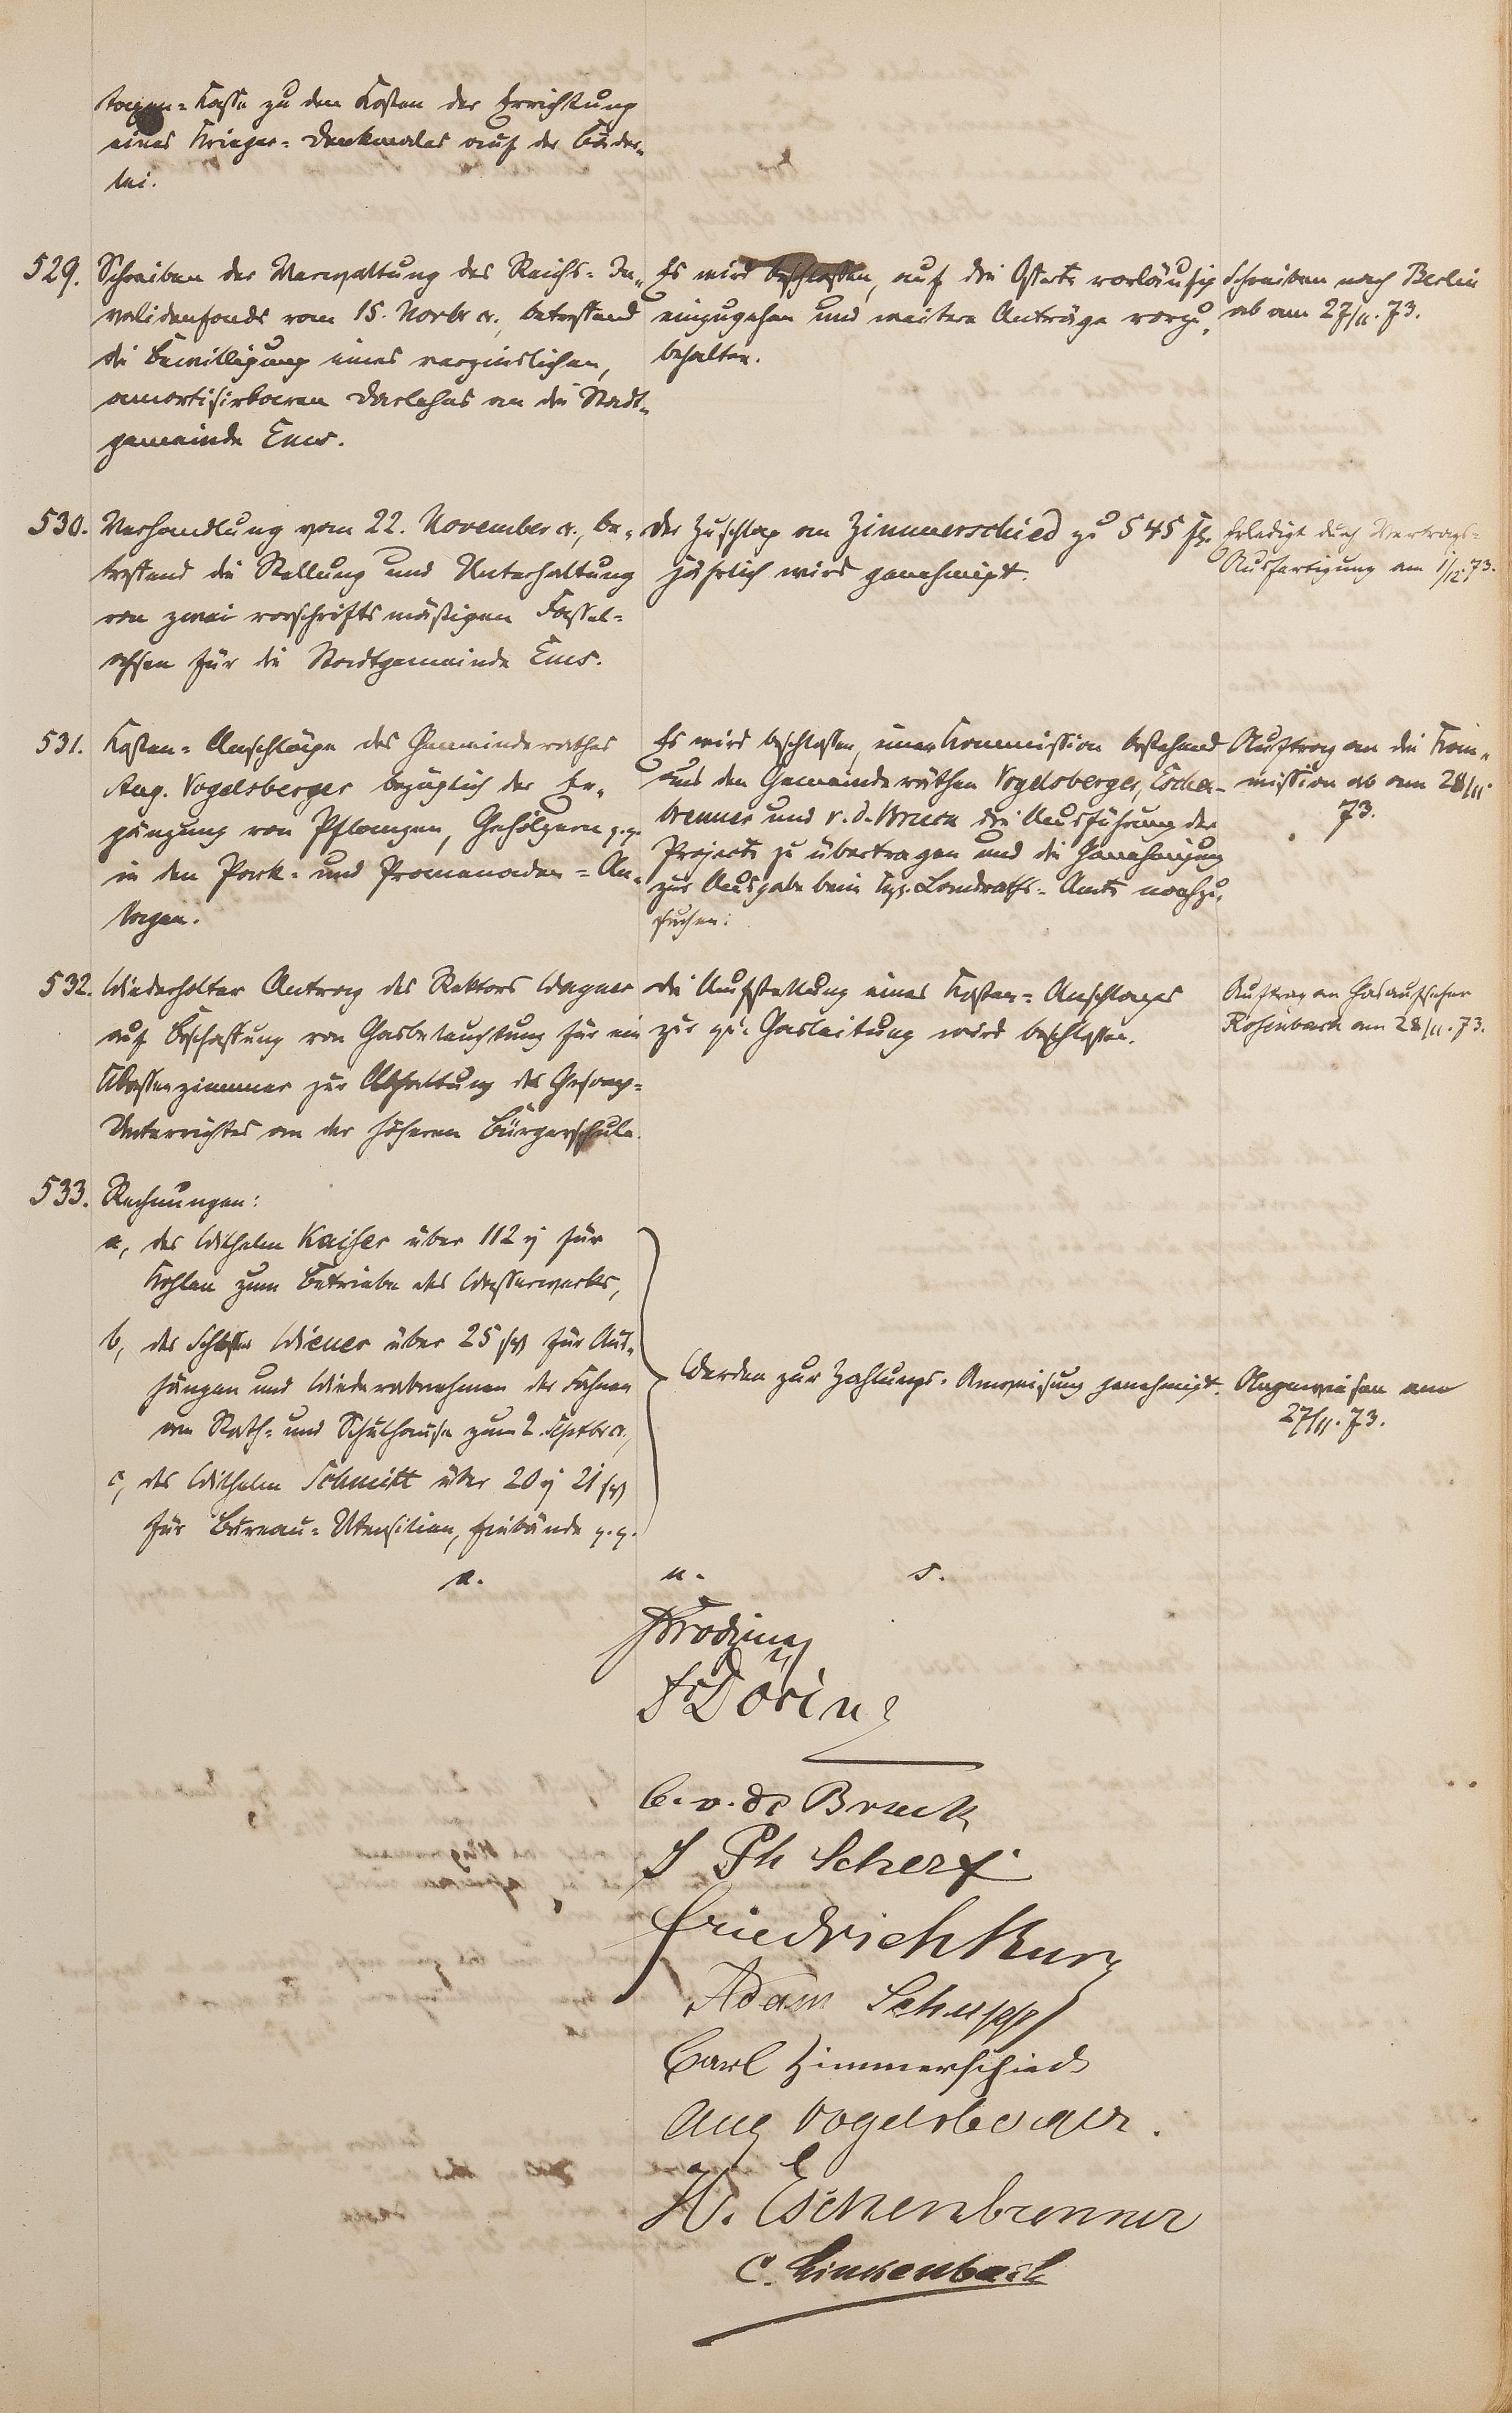 Kasse zu den Kosten der Errichtung
eines Krieger-Denkmales auf der Bäder-
lei.
529. Schreiben der Verwaltung des Reichs-In-
validenfonds vom 15. Novbr cr., betreffend
die Bewilligung eines verzinslichen,
amortisirbaren Darlehns an die Stadt-
gemeinde Ems.
Es wird beschlossen, auf die Offerte vorläufig
einzugehen und weitere Anträge vorzu-
behalten.
Schreiben nach Berlin
ab am 27/11.73.
530. Verhandlung vom 22. November cr., be-
treffend die Stellung und Unterhaltung
von zwei vorschriftsmäßigen Fassel-
ochsen für die Stadtgemeinde Ems.
Der Zuschlag an Zimmerschied zu 545 fl.
jährlich wird genehmigt.
Erledigt durch Vertrags-
Ausfertigung am 1/12.73.
531. Kosten-Anschläge des Gemeinderathes
Aug. Vogelsberger bezüglich der Er-
gänzung von Pflanzen, Gehölzern p.p.
in den Park- und Promenaden-An-
lagen.
Es wird beschlossen, einer Kommission bestehend
aus den Gemeinderäthen Vogelsberger, Eschen-
brenner und v. d. Bruck die Ausführung der
Projecte zu übertragen und die Genehmigung
zur Ausgabe beim Kgl. Landraths-Amte nachzu-
suchen.
Auftrag an die Kom-
mission ab am 28/11
73.
532. Wiederholter Antrag des Rektors Wagner
auf Beschaffung von Gasbeleuchtung für ein
Klassenzimmer zur Abhaltung des Gesang-
Unterrichtes an der höheren Bürgerschule.
Die Aufstellung eines Kosten-Anschlages
zur qu. Gasleitung wird beschlossen.
Auftrag an Gasaufseher
Rosenbach am 28/11.73.
533. Rechnungen:
a, des Wilhelm Kaiser über 112 für
Kohlen zum Betriebe des Wasserwerks,
b, des Schlosser Wiener über 25 sgr für Aus-
hängen und Wiederabnehmen der Fahnen
am Rath- und Schulhause zum 2. Septbr cr.,
c, des Wilhelm Schmitt über 20 21 sgr
für Bureau-Utensilien, Einbände p.p.
Werden zur Zahlungs-Anweisung genehmigt.
Angewiesen am
27/11.73.
a. u. s.
Döring
C. v. de Bruck
J Ph Scherf
Friedrich Kurz
Adam Schupp
Carl Zimmerschied
Aug Vogelsberger.
W. Eschenbrenner
C. Linkenbach